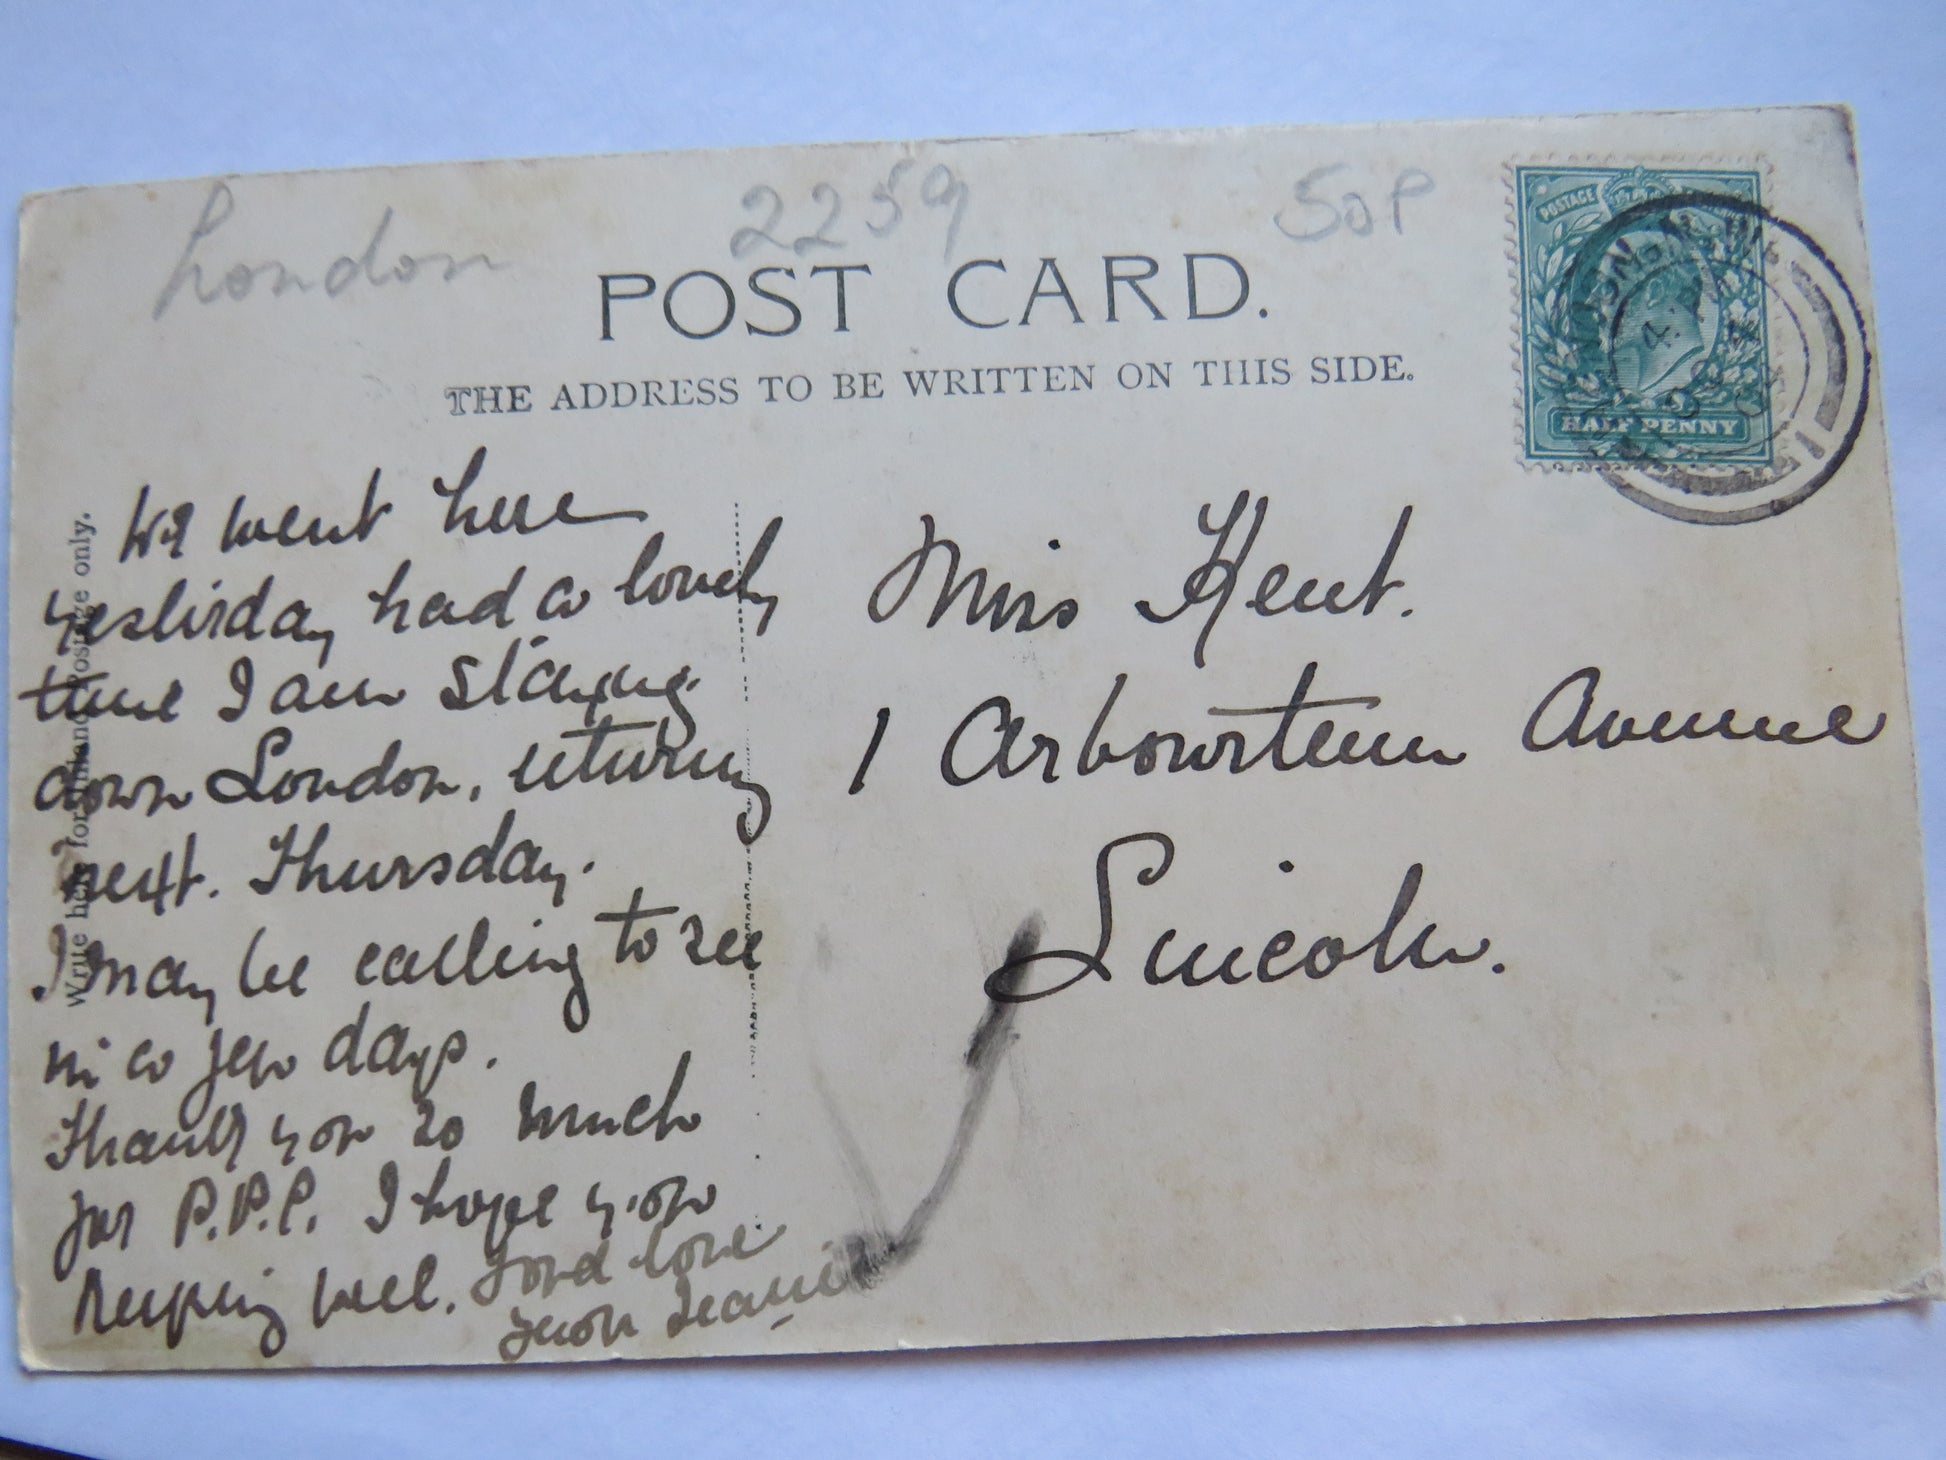 London
2259
50P
POST CARD.
THE ADDRESS TO BE WRITTEN ON THIS SIDE.
POSTAGE
HALF PENNY
Write here for Inland Postage only.
We went here
yesterday had a lovely
time I am staying
down London, returning
next. Thursday.
I may be calling to see
in a few days.
Thank you so much
for P.P.C. I hope you
keeping well. Fond love
from Jeannie
Miss Kent.
1 Arboretum Avenue
Lincoln.